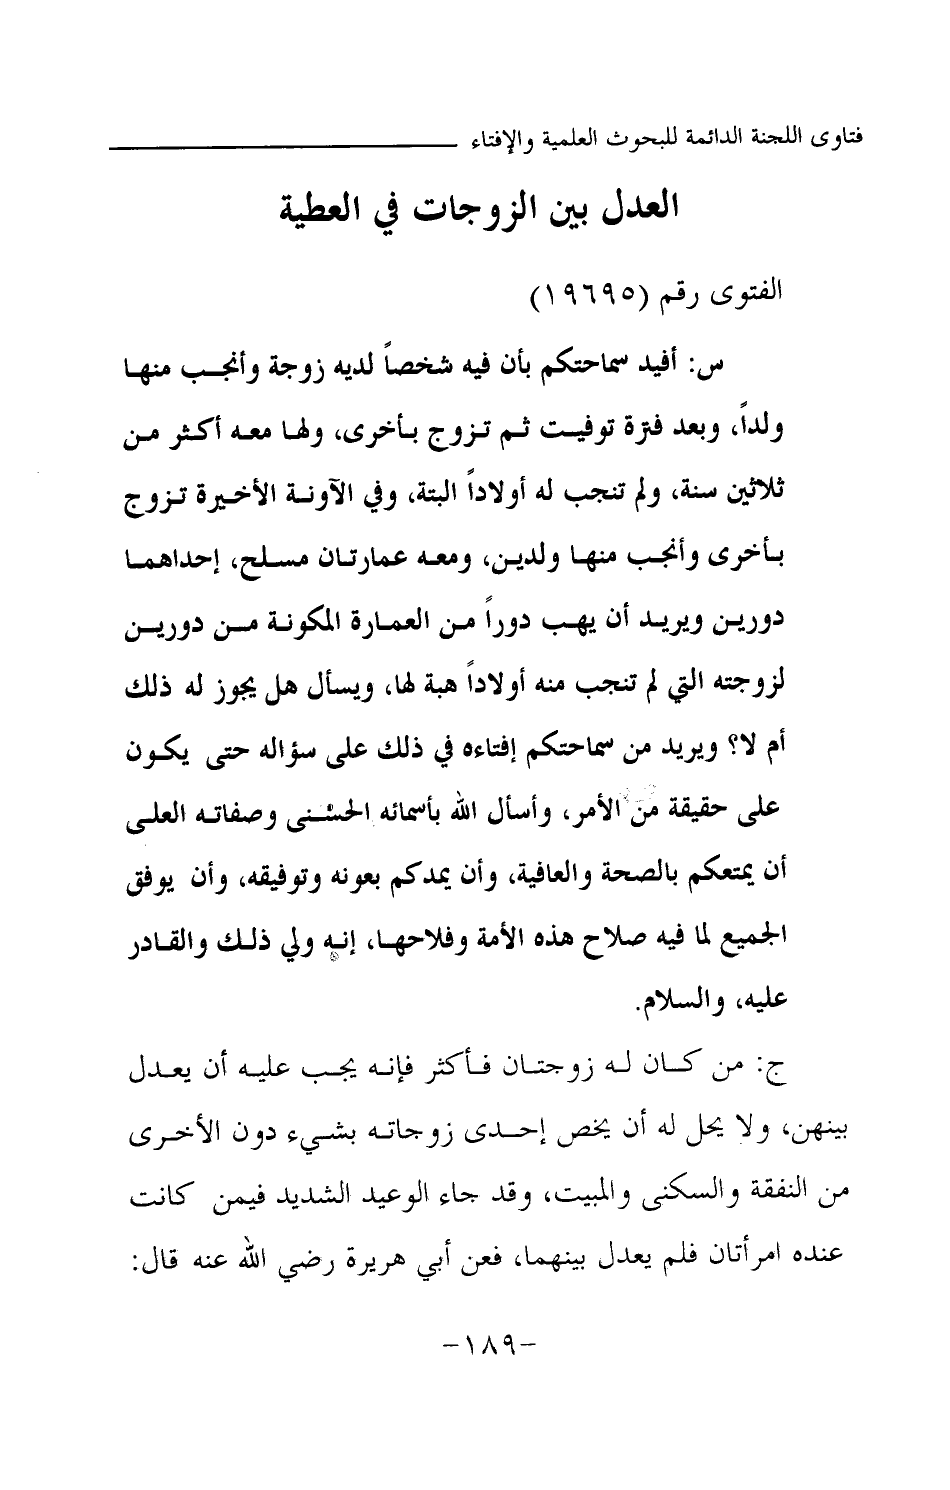 فتاوى اللجنة الدائمة للبحوث العلمية والإفتاء
العدل بين الزوجات في العطية
الفتوى رقم (١٩٦٩٥)
س: أفيد سماحتكم بأن فيه شخصاً لديه زوجة وأنجب منها
ولداً، وبعد فترة توفيت ثم تزوج بأخرى، ولها معه أكثر من
ثلاثين سنة، ولم تنجب له أولاداً البتة، وفي الآونة الأخيرة تزوج
بأخرى وأنجب منها ولدين، ومعه عمارتان مسلح، إحداهما
دورين ويريد أن يهب دوراً من العمارة المكونة من دورين
لزوجته التي لم تنجب منه أولاداً هبة لها، ويسأل هل يجوز له ذلك
أم لا؟ ويريد من سماحتكم إفتاءه في ذلك على سؤاله حتى يكون
على حقيقة من الأمر، وأسأل الله بأسمائه الحسنى وصفاته العلى
أن يمتعكم بالصحة والعافية، وأن يمدكم بعونه وتوفيقه، وأن يوفق
الجميع لما فيه صلاح هذه الأمة وفلاحها، إنه ولي ذلك والقادر
عليه، والسلام.
ج: من كان له زوجتان فأكثر فإنه يجب عليه أن يعدل
بينهن، ولا يحل له أن يخص إحدى زوجاته بشيء دون الأخرى
من النفقة والسكنى والمبيت، وقد جاء الوعيد الشديد فيمن كانت
عنده امرأتان فلم يعدل بينهما، فعن أبي هريرة رضي الله عنه قال:
-١٨٩-